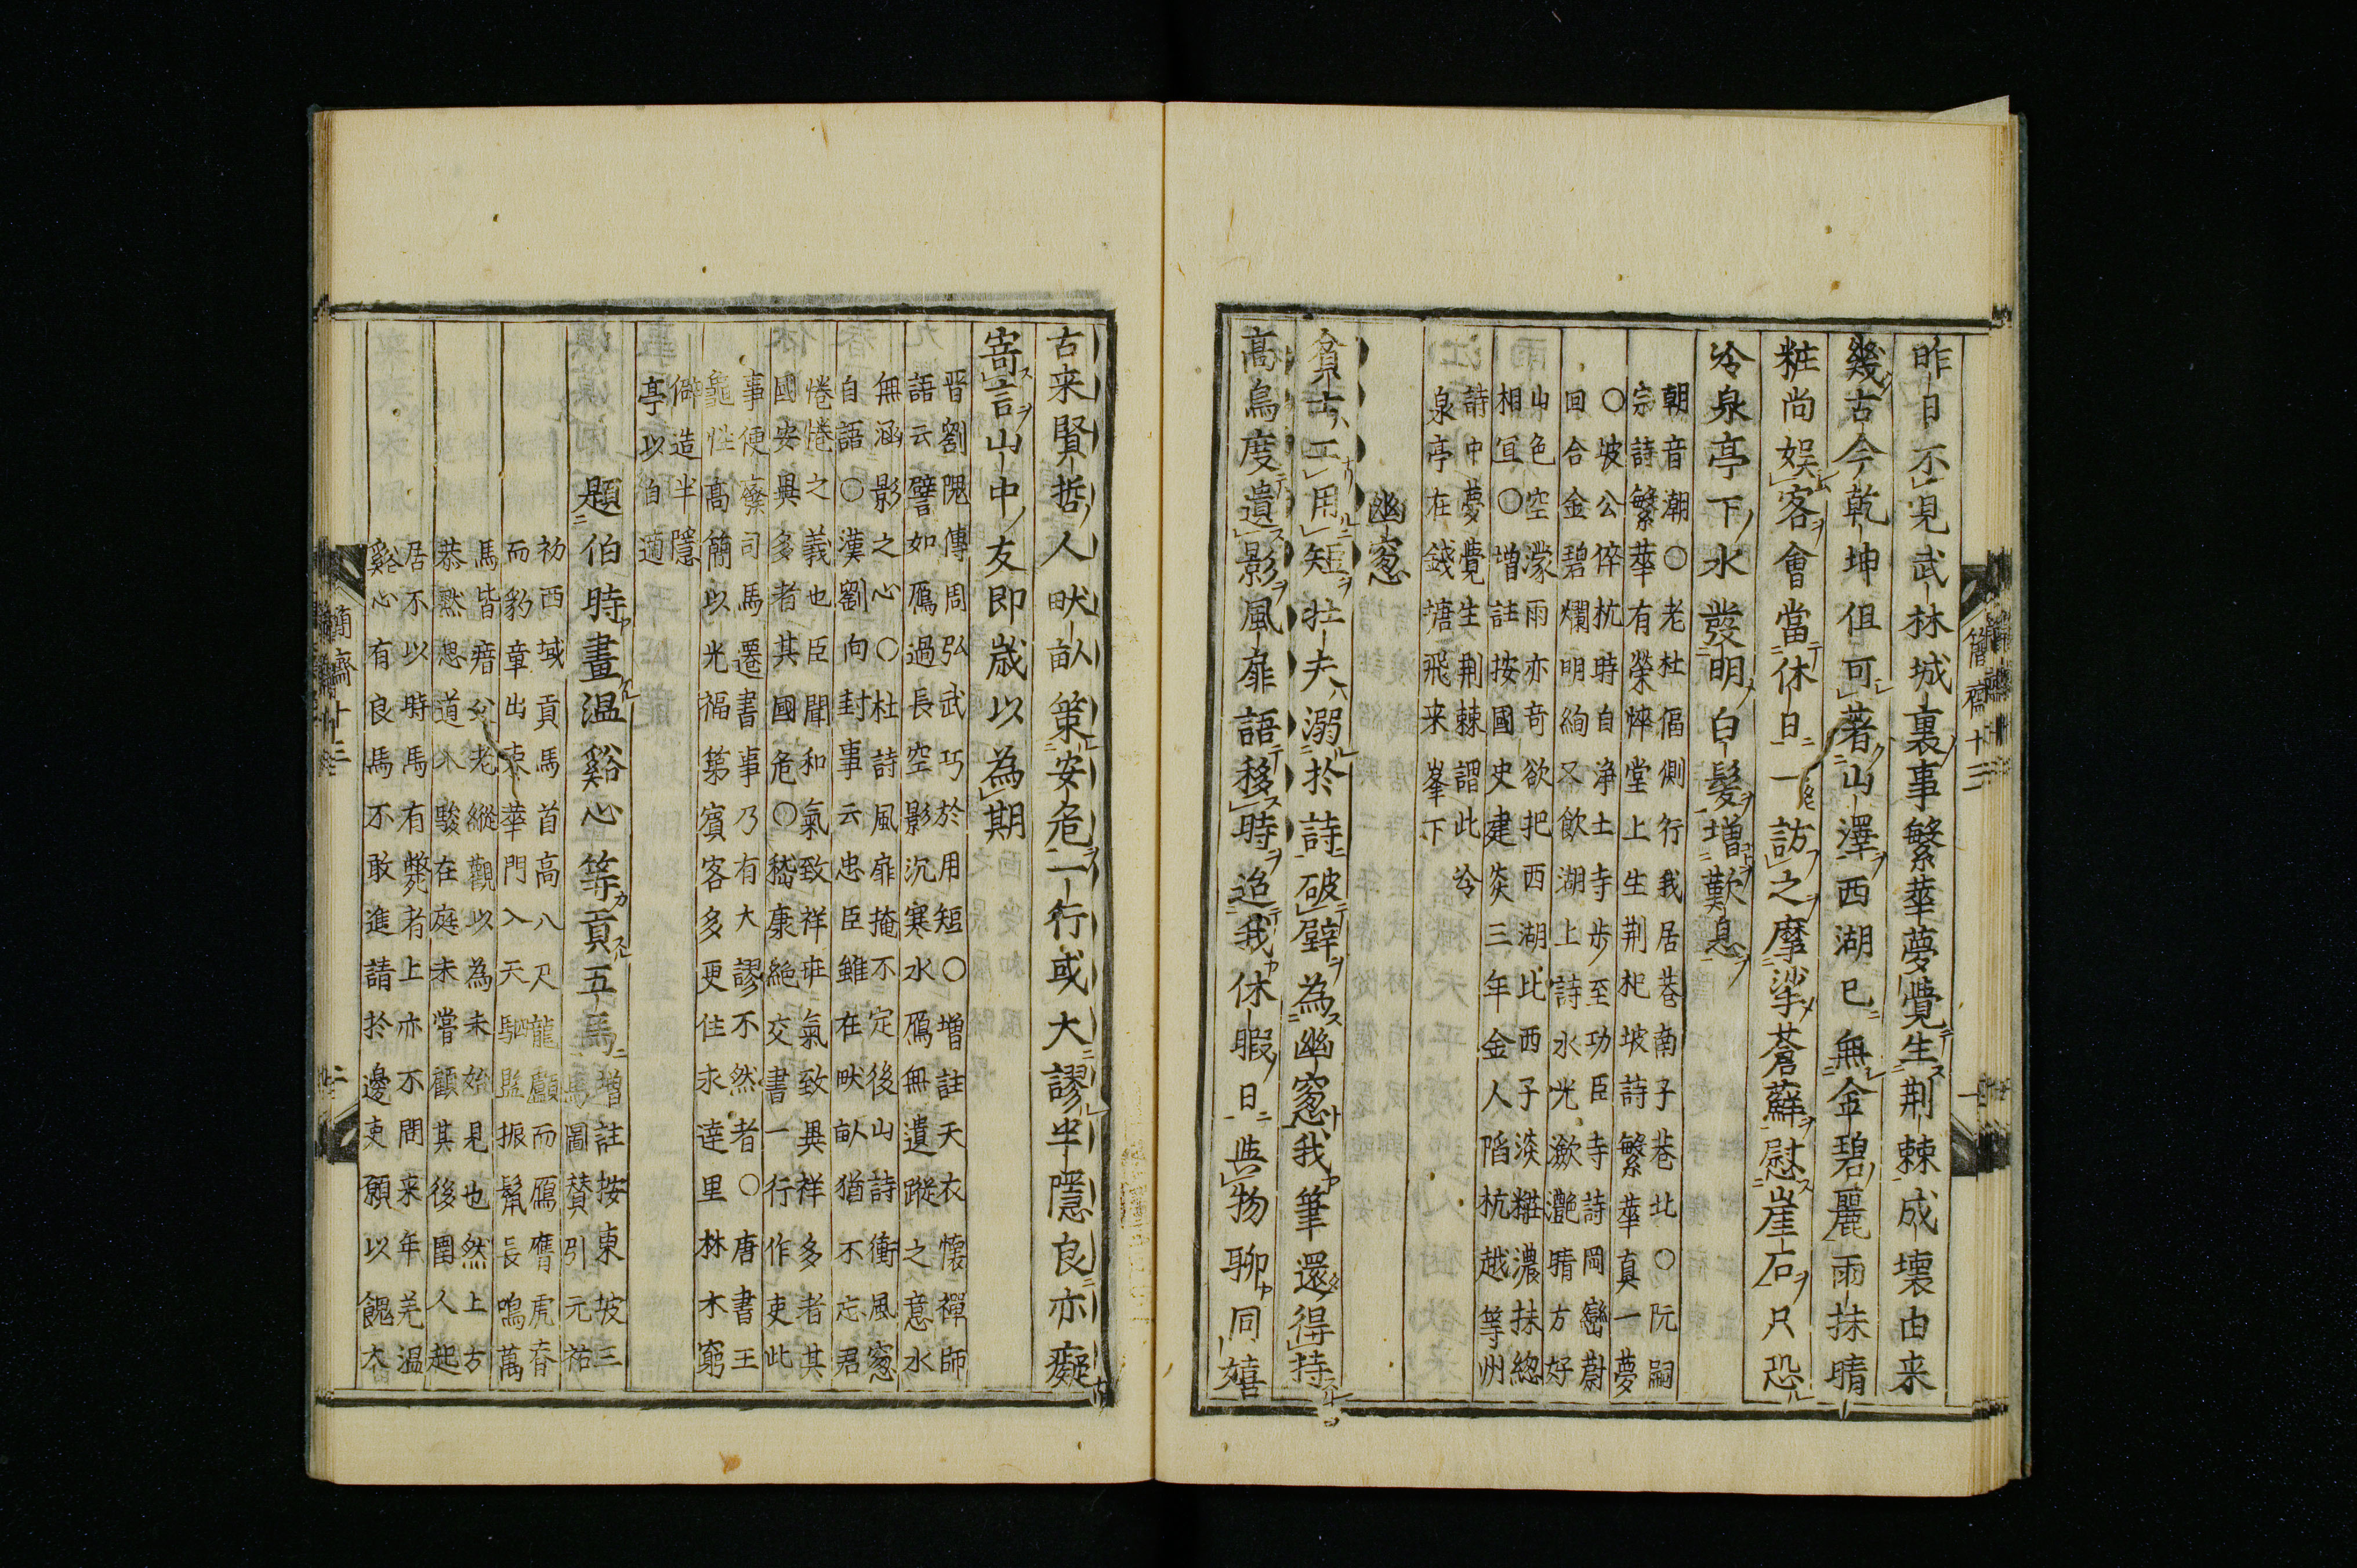 昨日不見武林城裏事繁華夢覺生荆棘成壊由来
幾古今乾坤但可著山澤西湖已無金碧麗雨抹晴
粧尚娱客會當休日一訪之摩挲蒼蘚慰崖石只恐
冷泉亭下水發明白髪增歎息
朝音潮○老杜偪側行我居巷南子巷北○阮嗣
宗詩繁華有榮悴堂上生荆杞坡詩繁華真一夢
○坡公倅杭時自浄土寺步至功臣寺詩岡巒蔚
回合金碧爛明絢又飲湖上詩水光瀲灧晴方好
山色空濛雨亦竒欲把西湖比西子淡糚濃抹緫
相宜○增註按國史建炎三年金人䧟杭越等州
詩中夢覺生荆棘謂此
泉亭在錢塘飛来峯下
幽窓
貧士工用短壮夫溺扵詩破壁為幽窓我筆還得持
髙鳥度遺影風扉語移時迨我休暇日與物聊同嬉
簡齋十三
一
古来賢哲人畎畝策安危一行或大謬半隱良亦癡
寄言山中友即嵗以為期
晋劉隗傳周弘武巧於用短○增註天衣懐禪師
語云譬如鴈過長空影沉寒水鴈無遺蹤之意水
無涵影之心○杜詩風扉掩不定後山詩衝風窓
自語○漢劉向封事云忠臣雖在畎畝猶不忘君
惓惓之義也臣聞和氣致祥乖氣致異祥多者其
國安異多者其國危○嵇康絶交書一行作吏此
事便廢司馬遷書事乃有大謬不然者○唐書王
龜性髙簡以光福第賓客多更住永達里林木窮
僻造半隱
亭以自適
題伯時畫温谿心等貢五馬
增註按東坡三
馬圖賛引元祐
初西域貢馬首高八尺龍顱而鳯膺虎脊
而豹章出東華門入天駟監振鬛長鳴萬
馬皆瘖父老縱觀以為未始見也然上方
恭黙思道八駿在庭未嘗顧其後圉人起
居不以時馬有斃者上亦不問来年羌温
谿心有良馬不敢進請扵邊吏願以餽太
簡齋十三
二